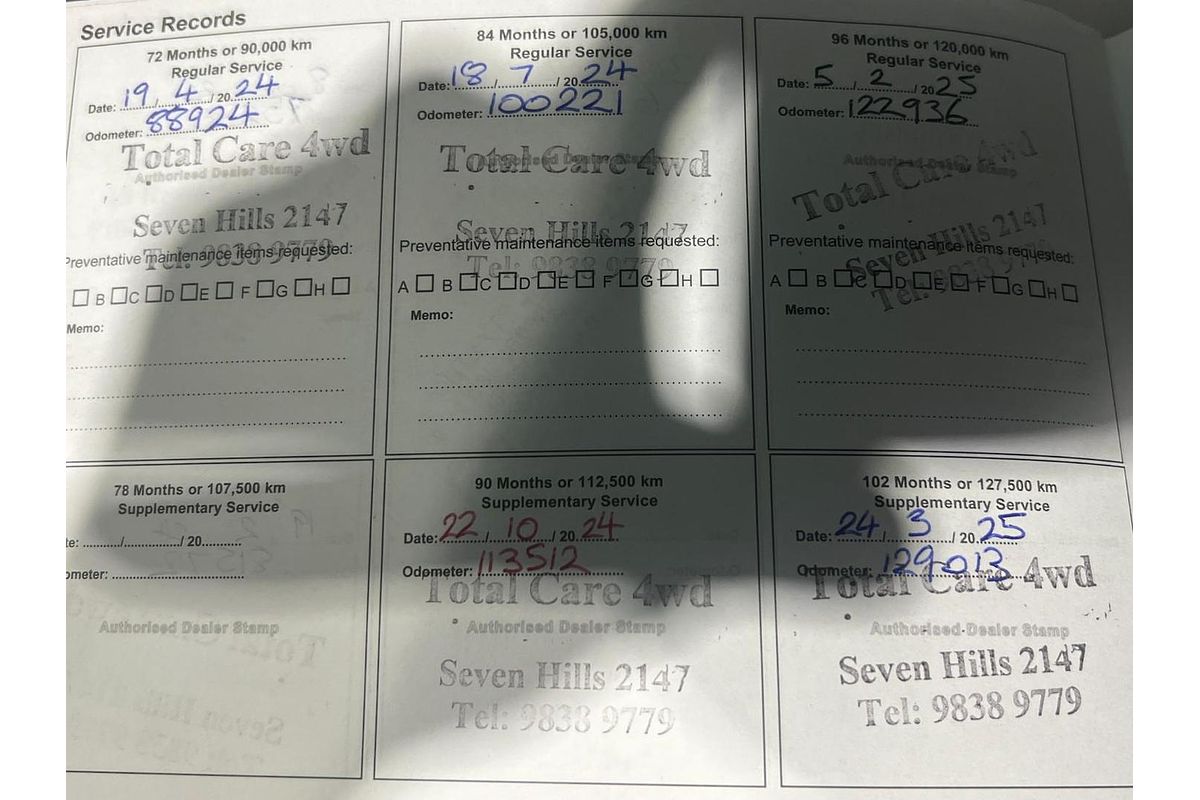 Service Records
72 Months or 90,000 km
Regular Service
Date: 19 / 4 / 20 24
Odometer: 88924
Total Care 4wd
Authorised Dealer Stamp
Seven Hills 2147
Tel: 9838 9779
Preventative maintenance items requested:
B C D E F G H
Memo:
84 Months or 105,000 km
Regular Service
Date: 18 / 7 / 20 24
Odometer: 100221
Total Care 4wd
Authorised Dealer Stamp
Seven Hills 2147
Tel: 9838 9779
Preventative maintenance items requested:
A B C D E F G H
Memo:
96 Months or 120,000 km
Regular Service
Date: 5 / 2 / 20 25
Odometer: 122936
Authorised Dealer Stamp
Total Care 4wd
Seven Hills 2147
Preventative maintenance items requested:
Tel:
A B C D E F G H
Memo:
78 Months or 107,500 km
Supplementary Service
te: / / 20
ometer:
Authorised Dealer Stamp
90 Months or 112,500 km
Supplementary Service
Date: 22 / 10 / 20 24
Odometer: 113512
Total Care 4wd
Authorised Dealer Stamp
Seven Hills 2147
Tel: 9838 9779
102 Months or 127,500 km
Supplementary Service
Date: 24 / 3 / 20 25
Odometer: 129013
Total Care 4wd
Authorised Dealer Stamp
Seven Hills 2147
Tel: 9838 9779